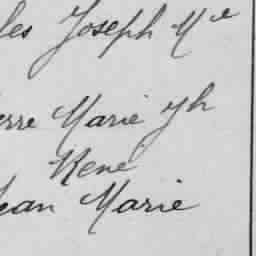 les Joseph Mie
erre Marie Jh
René
Jean Marie